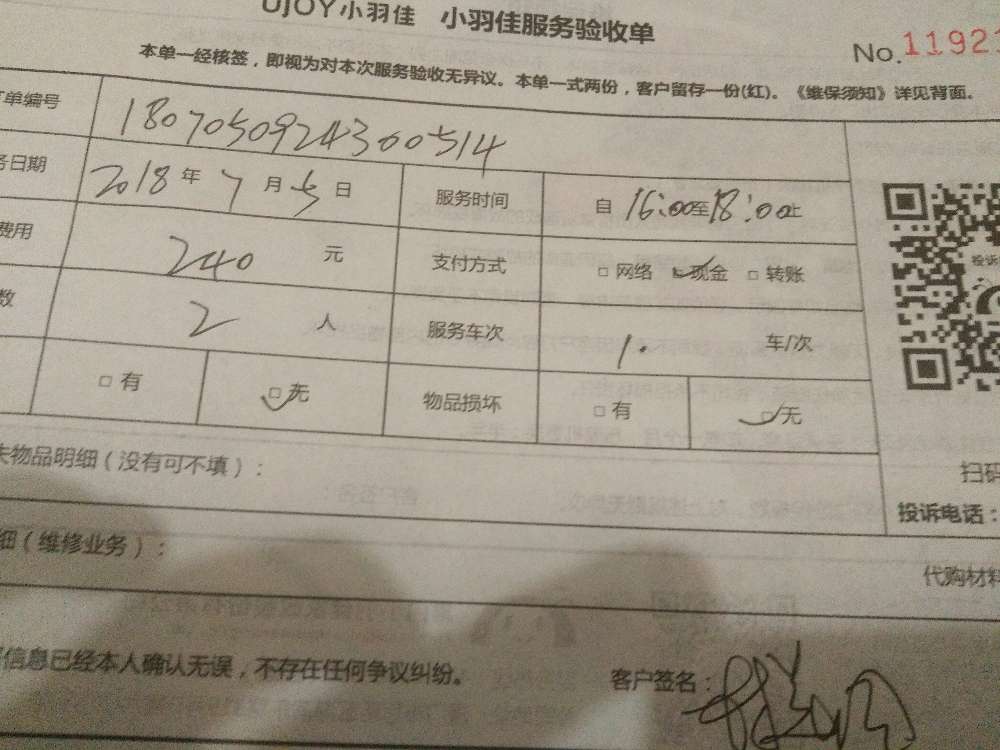 UJOY小羽佳 小羽佳服务验收单
No.11921
本单一经核签，即视为对本次服务验收无异议。本单一式两份，客户留存一份(红)。《维保须知》详见背面。
单编号 1807050924300514
务日期 2018年7月5日 服务时间 自16:00至18:00止
费用 240元 支付方式 □网络 ☑现金 □转账
数 2人 服务车次 1. 车/次
□有 ☑无 物品损坏 □有 ☑无
失物品明细（没有可不填）：
扫码
投诉电话：
细（维修业务）：
代购材料
信息已经本人确认无误，不存在任何争议纠纷。 客户签名：
投诉